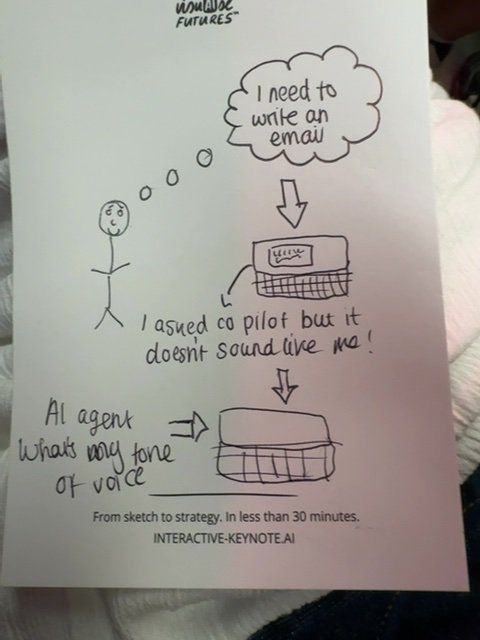 visualise
FUTURES™
I need to
write an
email
I asued co pilot but it
doesn't sound like me!
AI agent
whats my tone
of voice
From sketch to strategy. In less than 30 minutes.
INTERACTIVE-KEYNOTE.AI